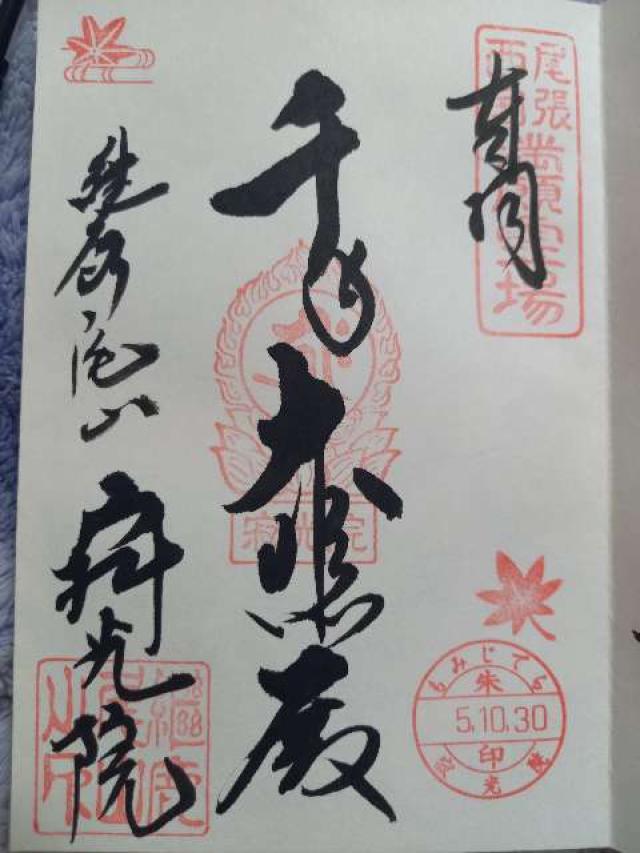 奉拝
尾張
西国
満願霊場
千手大悲殿
寂光院
継鹿尾山 寂光院
もみじでら
朱
5.10.30
印
寂光院